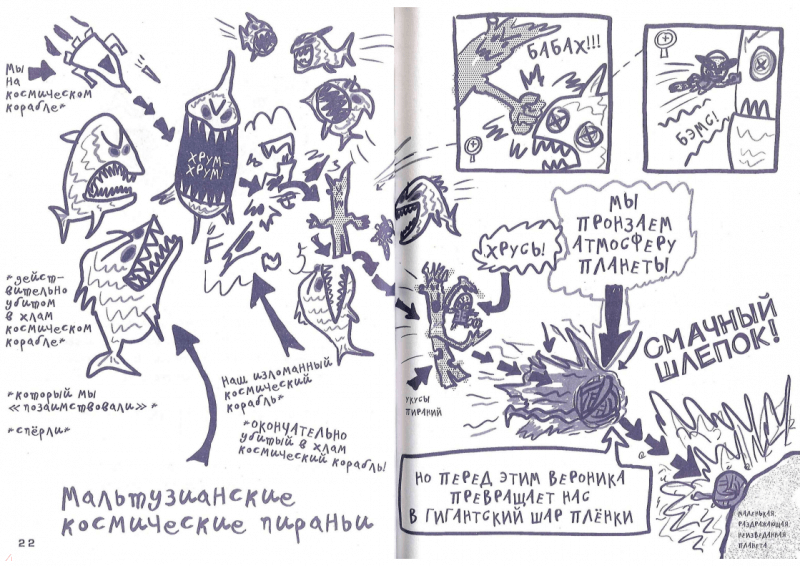 Мы
на
космическом
корабле*
ХРУМ-
ХРУМ!
*дейст-
вительно
убитом
в хлам
космическом
корабле*
*который мы
«позаимствовали»*
*спёрли*
наш изломанный
космический
корабль*
*окончательно
убитый в хлам
космический корабль!
Мальтузианские
космические пираньи
22
БАБАХ!!!
БЭМС!
ХРУСЬ!
МЫ
ПРОНЗАЕМ
АТМОСФЕРУ
ПЛАНЕТЫ
УКУСЫ
ПИРАНИЙ
СМАЧНЫЙ
ШЛЕПОК!
НО ПЕРЕД ЭТИМ ВЕРОНИКА
ПРЕВРАЩАЕТ НАС
В ГИГАНТСКИЙ ШАР ПЛЁНКИ
МАЛЕНЬКАЯ
РАЗДРАЖАЮЩАЯ
НЕИЗВЕДАННАЯ
ПЛАНЕТА